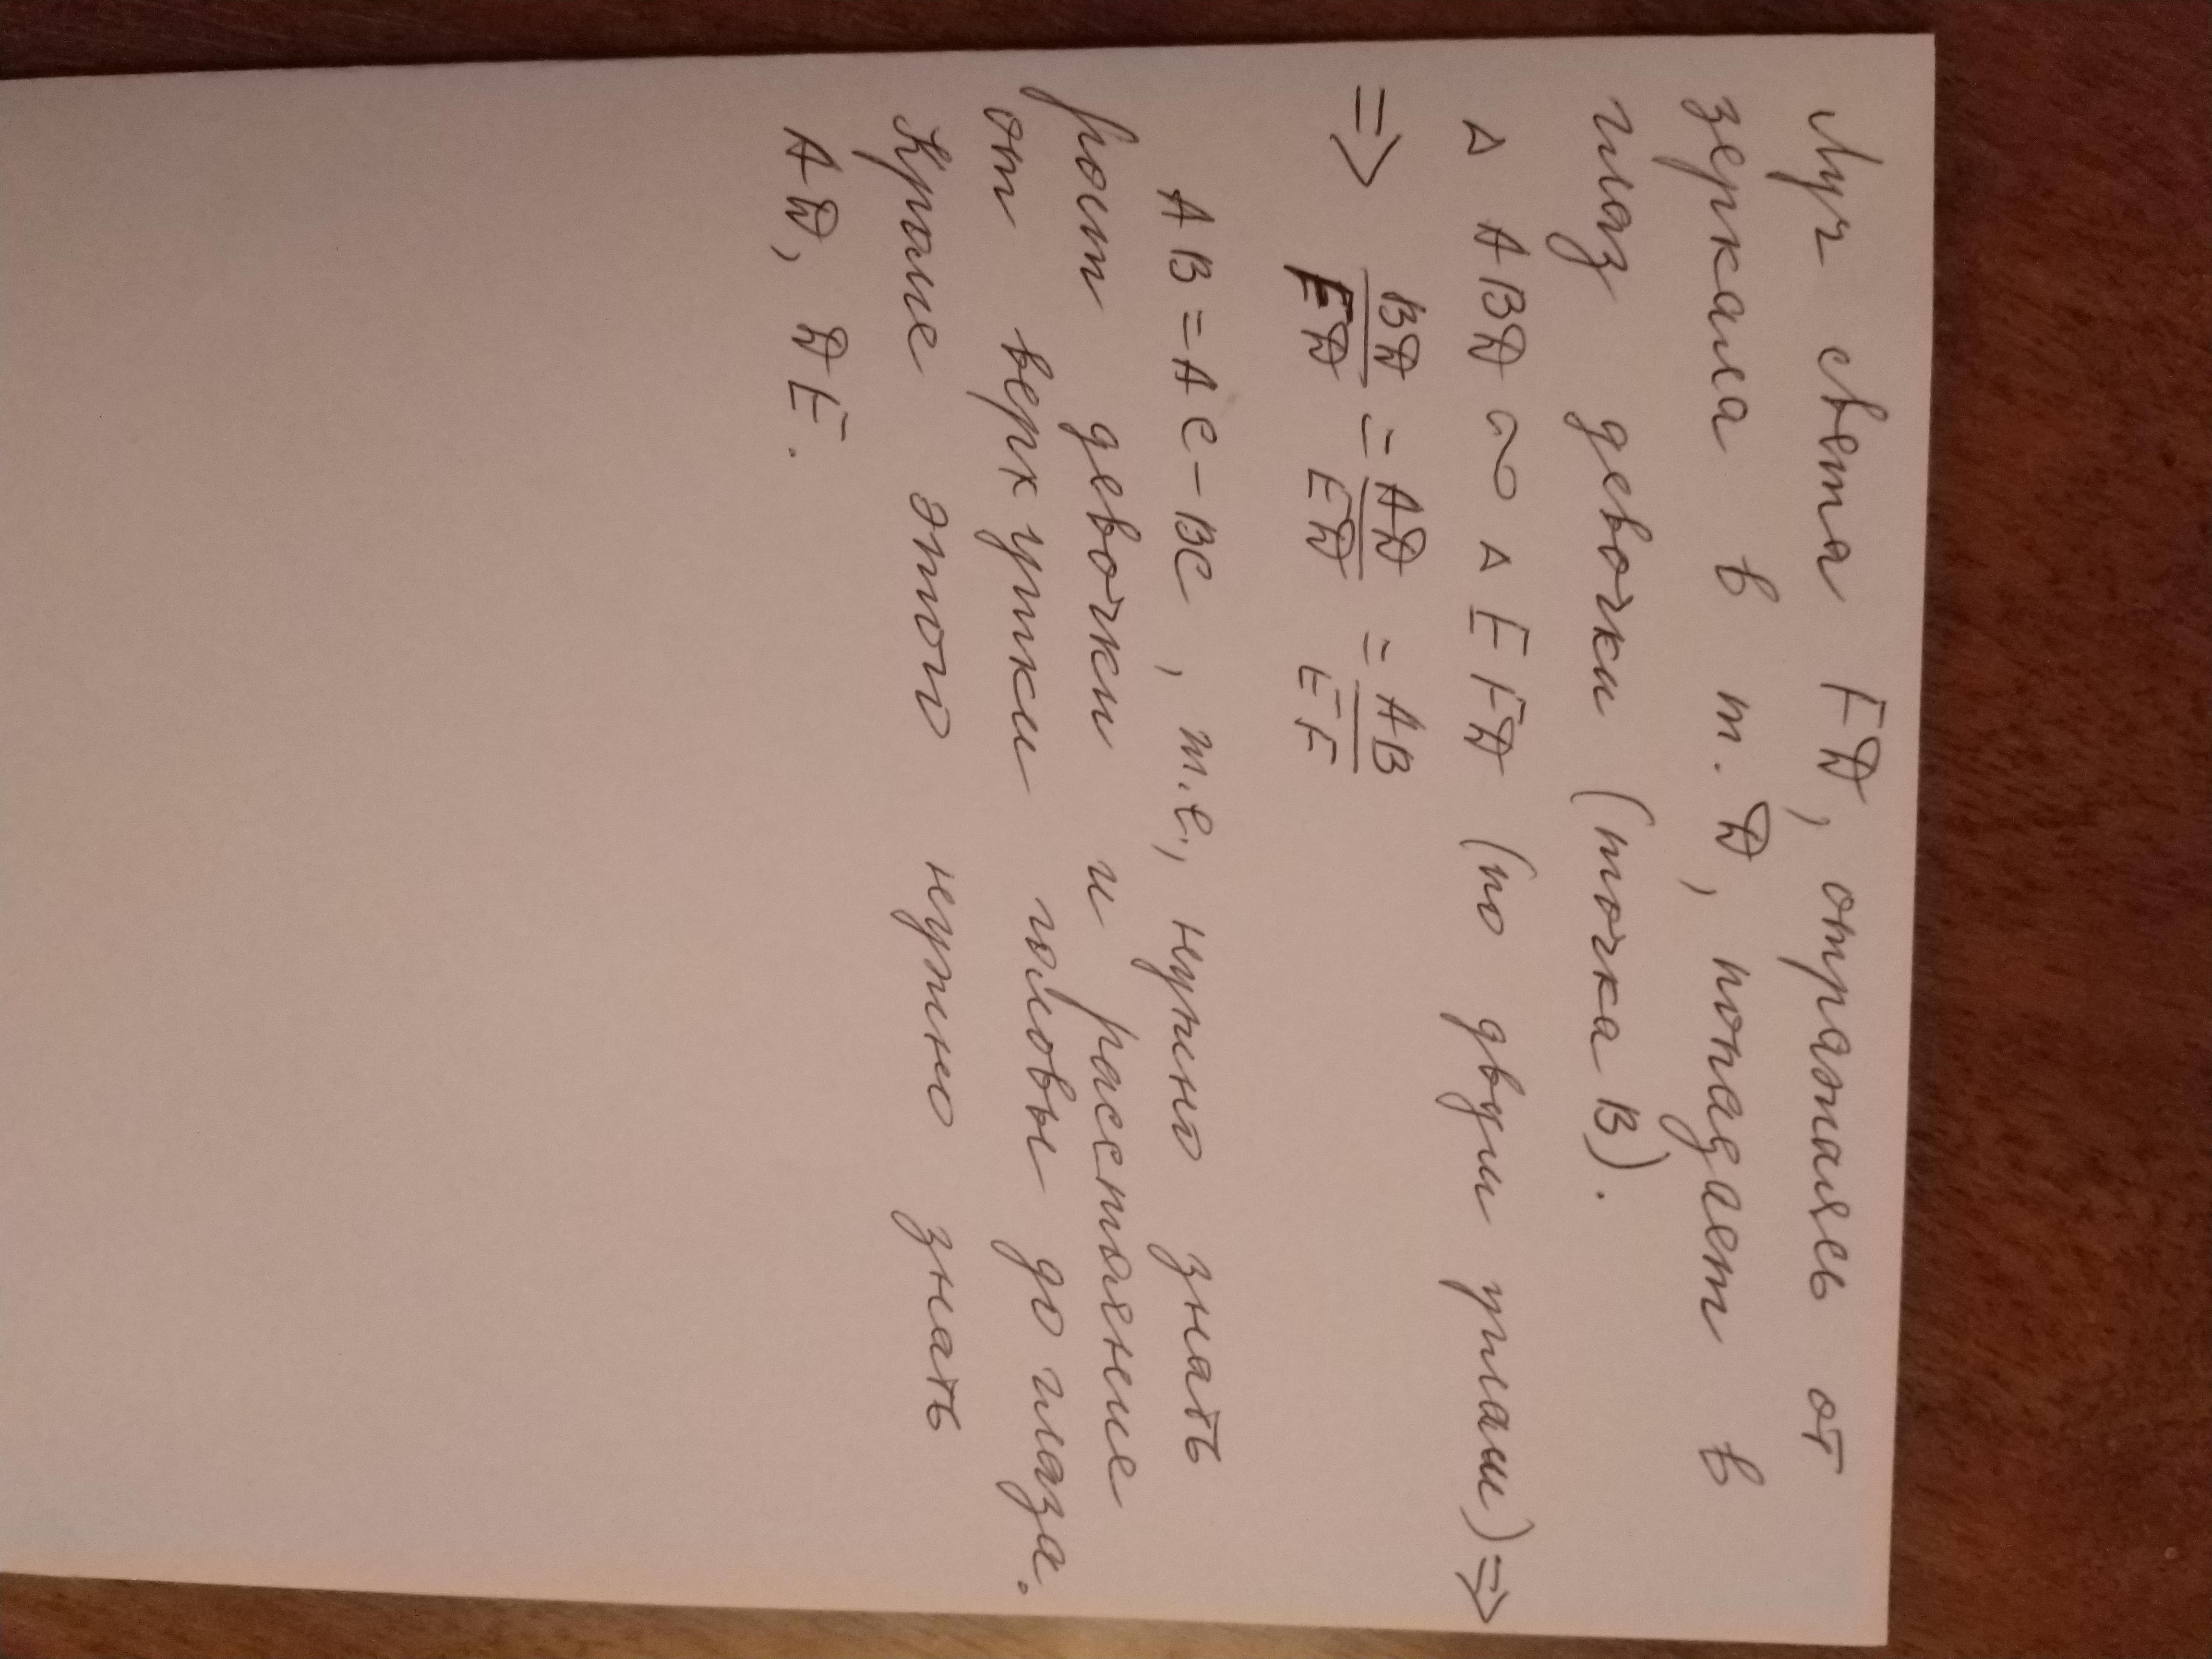 Луч света FD, отражаясь от
зеркала в т. D, попадает в
глаз девочки (точка В).
△ ABD ∾ △ EFD (по двум углам) =>
=> BD/FD = AD/ED = AB/EF
AB = AC - BC, т.е., нужно знать
рост девочки и расстояние
от верхушки головы до глаза.
Кроме этого нужно знать
AD, DE.